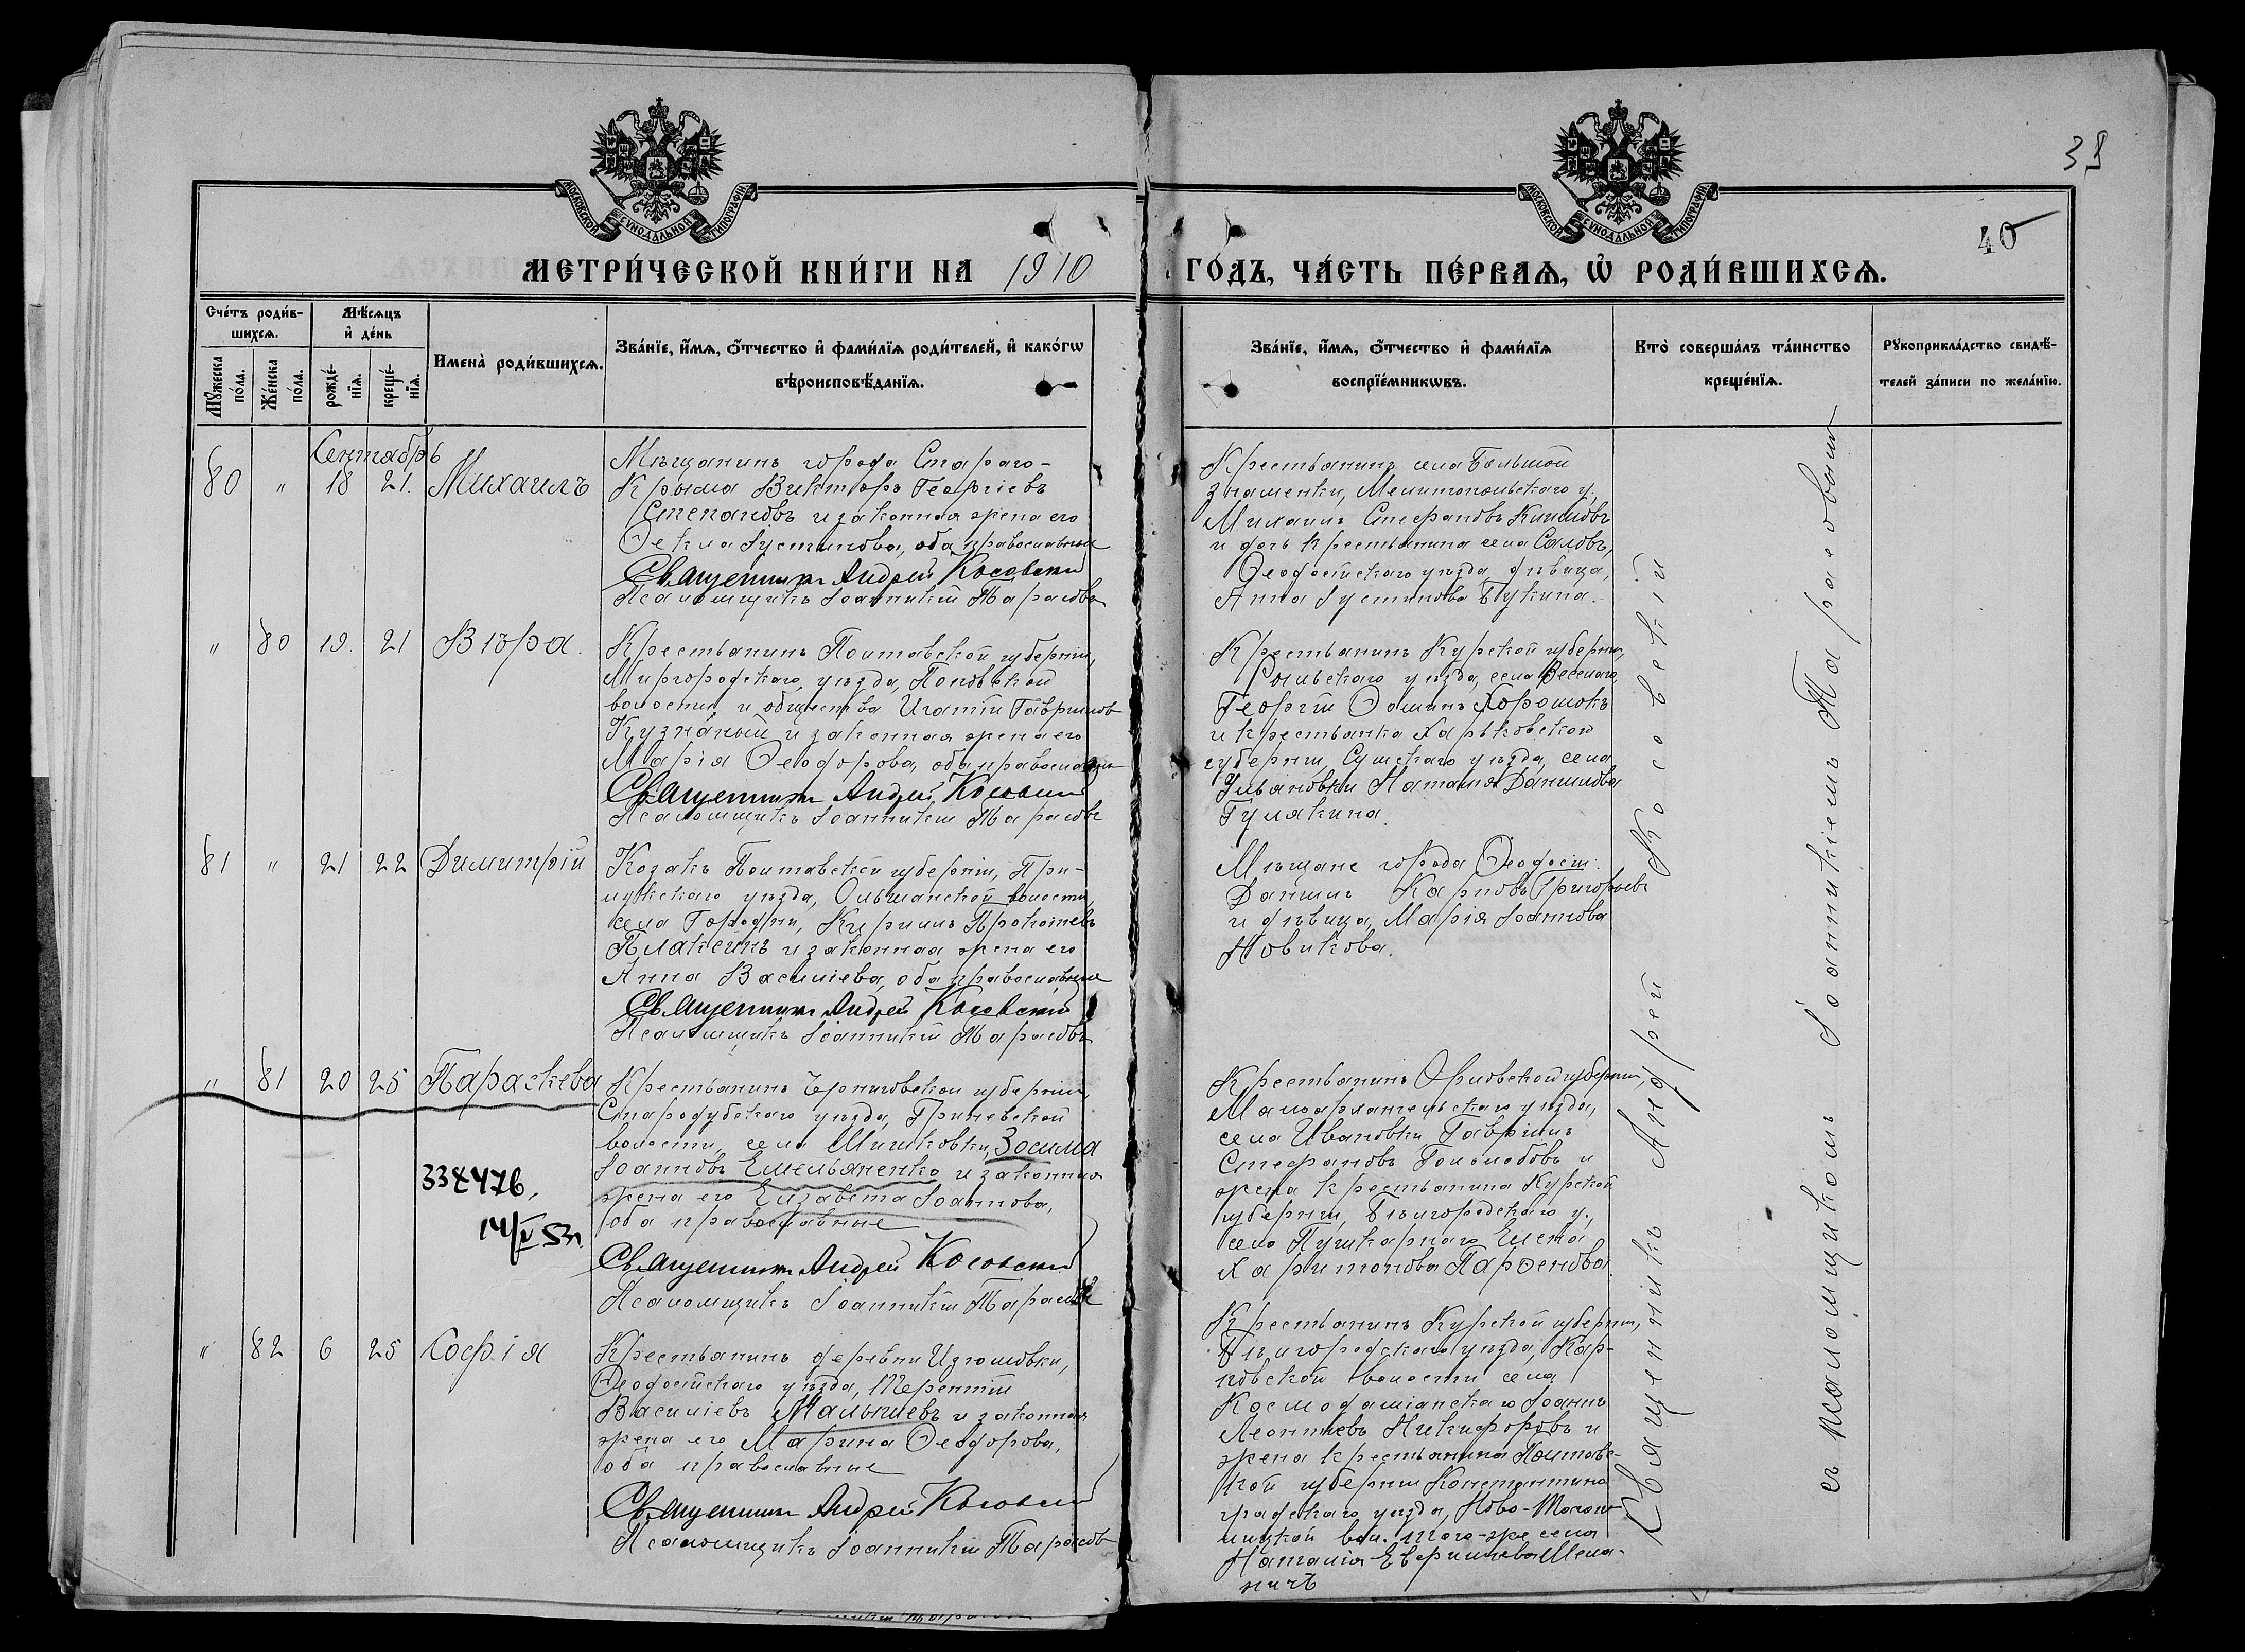 39
40
МОСКОВСКОЙ СѴНОДАЛЬНОЙ ТИПОГРАФІИ
МОСКОВСКОЙ СѴНОДАЛЬНОЙ ТИПОГРАФІИ
МЕТРИ́ЧЕСКОЙ КНИ́ГИ НА 1910 ГО́ДЪ, ЧА́СТЬ ПЕ́РВАѦ, Ѡ҆ РОДИ́ВШИХСѦ.
Сче́тъ роди́в-
шихсѧ.
Мꙋ́жеска по́ла.
Же́нска по́ла.
Мѣ́сѧцъ
и҆ де́нь
рожде́-
нїѧ.
креще́-
нїѧ.
Имена̀ роди́вшихсѧ.
Зва́нїе, и҆́мѧ, ѻ҆́тчество и҆ фами́лїѧ роди́телей, и҆ како́гѡ
вѣроисповѣ́данїѧ.
Зва́нїе, и҆́мѧ, ѻ҆́тчество и҆ фами́лїѧ
воспрїе́мникѡвъ.
Кто̀ соверша́лъ та́инство
креще́нїѧ.
Рꙋкоприкла́дство свидѣ́-
телей за́писи по жела́нїю.
Сентябрь
80 " 18 21. Михаилъ
Мѣщанинъ города Стараго-
Крыма Викторъ Георгіевъ
Степановъ и законная жена его
Ѳекла Іустинова, оба православные
Священникъ Андрей Косовскій
Псаломщикъ Іоанникій Тарасовъ
Крестьянинъ села Большой
Знаменки, Мелитопольскаго у.,
Михаилъ Стефановъ
и дочь крестьянина села Саловъ,
Ѳеодосійскаго уѣзда, дѣвица,
Анна Іустинова Букина.
" 80 19. 21 Вѣра.
Крестьянинъ Полтавской губерніи,
Миргородскаго уѣзда, Поповской
волости и общества Игатій Гавриловъ
Кузнаный и законная жена его
Марія Ѳеодорова, оба православные
Священникъ Андрей Косовскій
Псаломщикъ Іоанникій Тарасовъ
Крестьянинъ Курской губерніи,
Рыльскаго уѣзда, села Веселаго,
Георгій Ѳоминъ Хорошокъ
и крестьянка Харьковской
губерніи, Сумскаго уѣзда, села
Ульяновки Наталія Даниилова
Гулякина.
81 " 21 22 Димитрій
Козакъ Полтавской губерніи, При-
лукскаго уѣзда, Ольшанской волости,
села Городни, Кириллъ Прокопіевъ
Плаксинъ и законная жена его
Анна Василіева, оба православные
Священникъ Андрей Косовскій
Псаломщикъ Іоанникій Тарасовъ
Мѣщане города Ѳеодосіи:
Даниилъ Карповъ Григорьевъ
и дѣвица, Марія Іоаннова
Новикова.
" 81 20 25 Параскева
Крестьянинъ Черниговской губерніи,
Стародубскаго уѣзда, Гриневской
волости, села Мишковки, Зосима
Іоанновъ Емельяненко и законная
жена его Елизавета Іоаннова,
оба православные
Священникъ Андрей Косовскій
Псаломщикъ Іоанникій Тарасовъ
14/V 53г.
Крестьянинъ Орловской губерніи,
Малоархангельскаго уѣзда,
села Ивановки Гавріилъ
Стефановъ Гололобовъ и
жена крестьянина Курской
губерніи, Бѣлгородскаго у.,
села Пушкарнаго Елена
Харитонова Парѳенова.
" 82 6 25 Софія
Крестьянинъ деревни Изюмовки,
Ѳеодосійскаго уѣзда, Терентій
Василіевъ Малышевъ и законная
жена его Марина Ѳеодорова,
оба православные
Священникъ Андрей Косовскій
Псаломщикъ Іоанникій Тарасовъ
Крестьянинъ Курской губерніи,
Бѣлгородскаго уѣзда, Кар-
повской волости села
Космодаміанскаго Іоаннъ
Леонтіевъ Никифоровъ и
жена крестьянина Полтавс-
кой губерніи Константино
градскаго уѣзда, Ново-
вол. того-же села
Наталія
Священникъ Андрей Косовскій
съ псаломщикомъ Іоанникіемъ Тарасовымъ